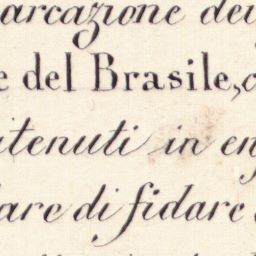 arcazione dei
e del Brasile,
tenuti in en
are di fidare